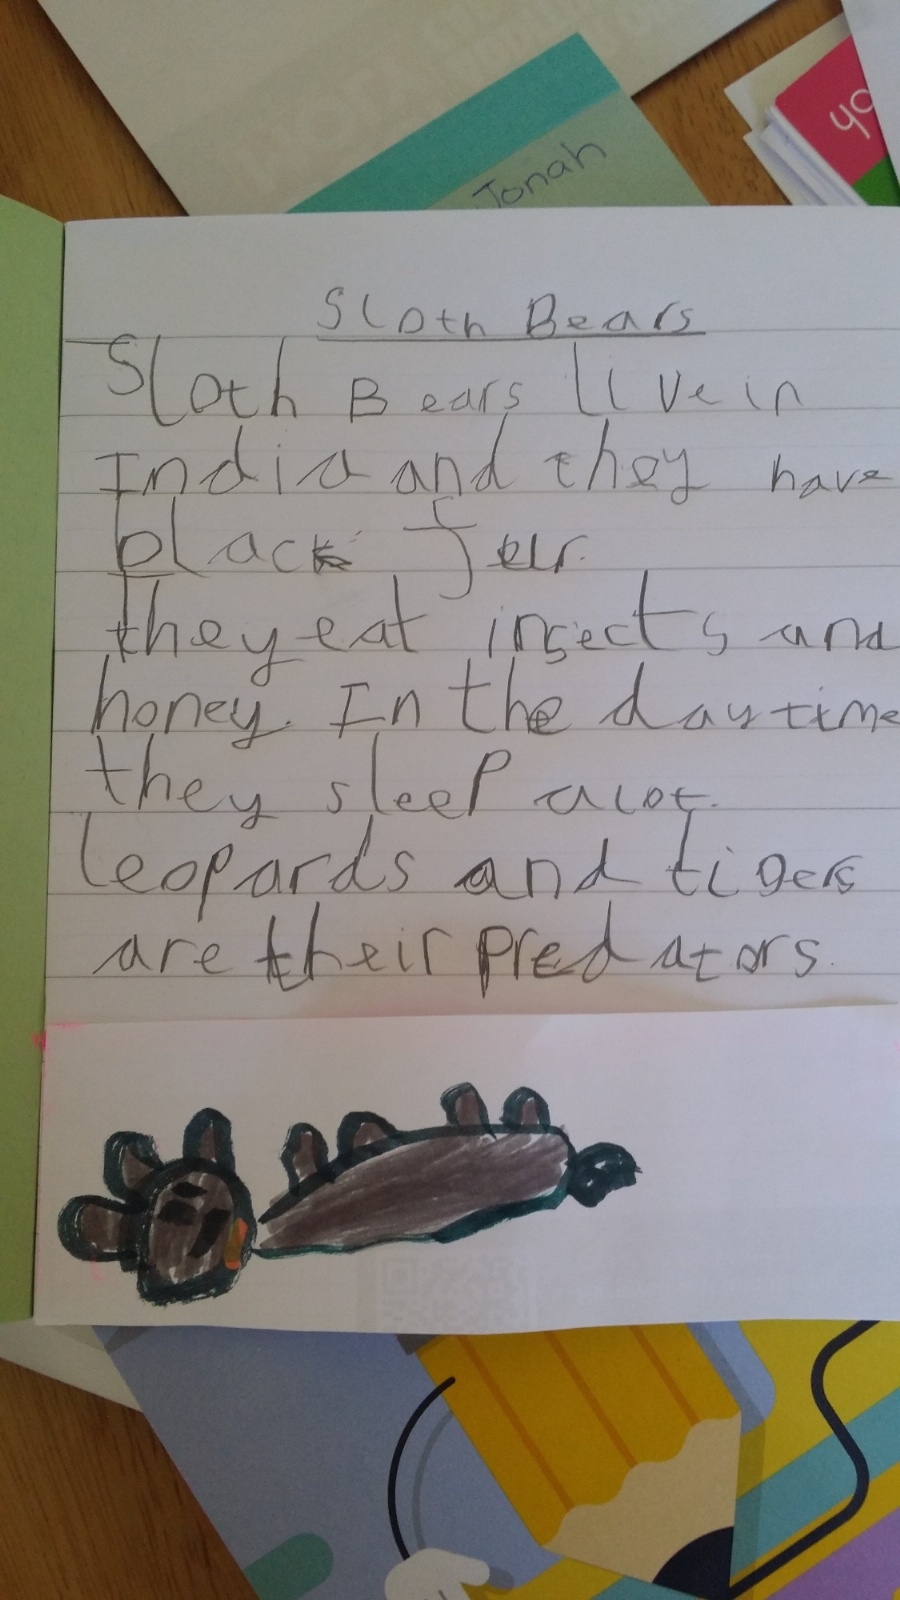 Jonah
yo
Sloth Bears
Sloth Bears live in
India and they have
black fur.
they eat insects and
honey. In the daytime
they sleep alot.
leopards and tigers
are their predators.